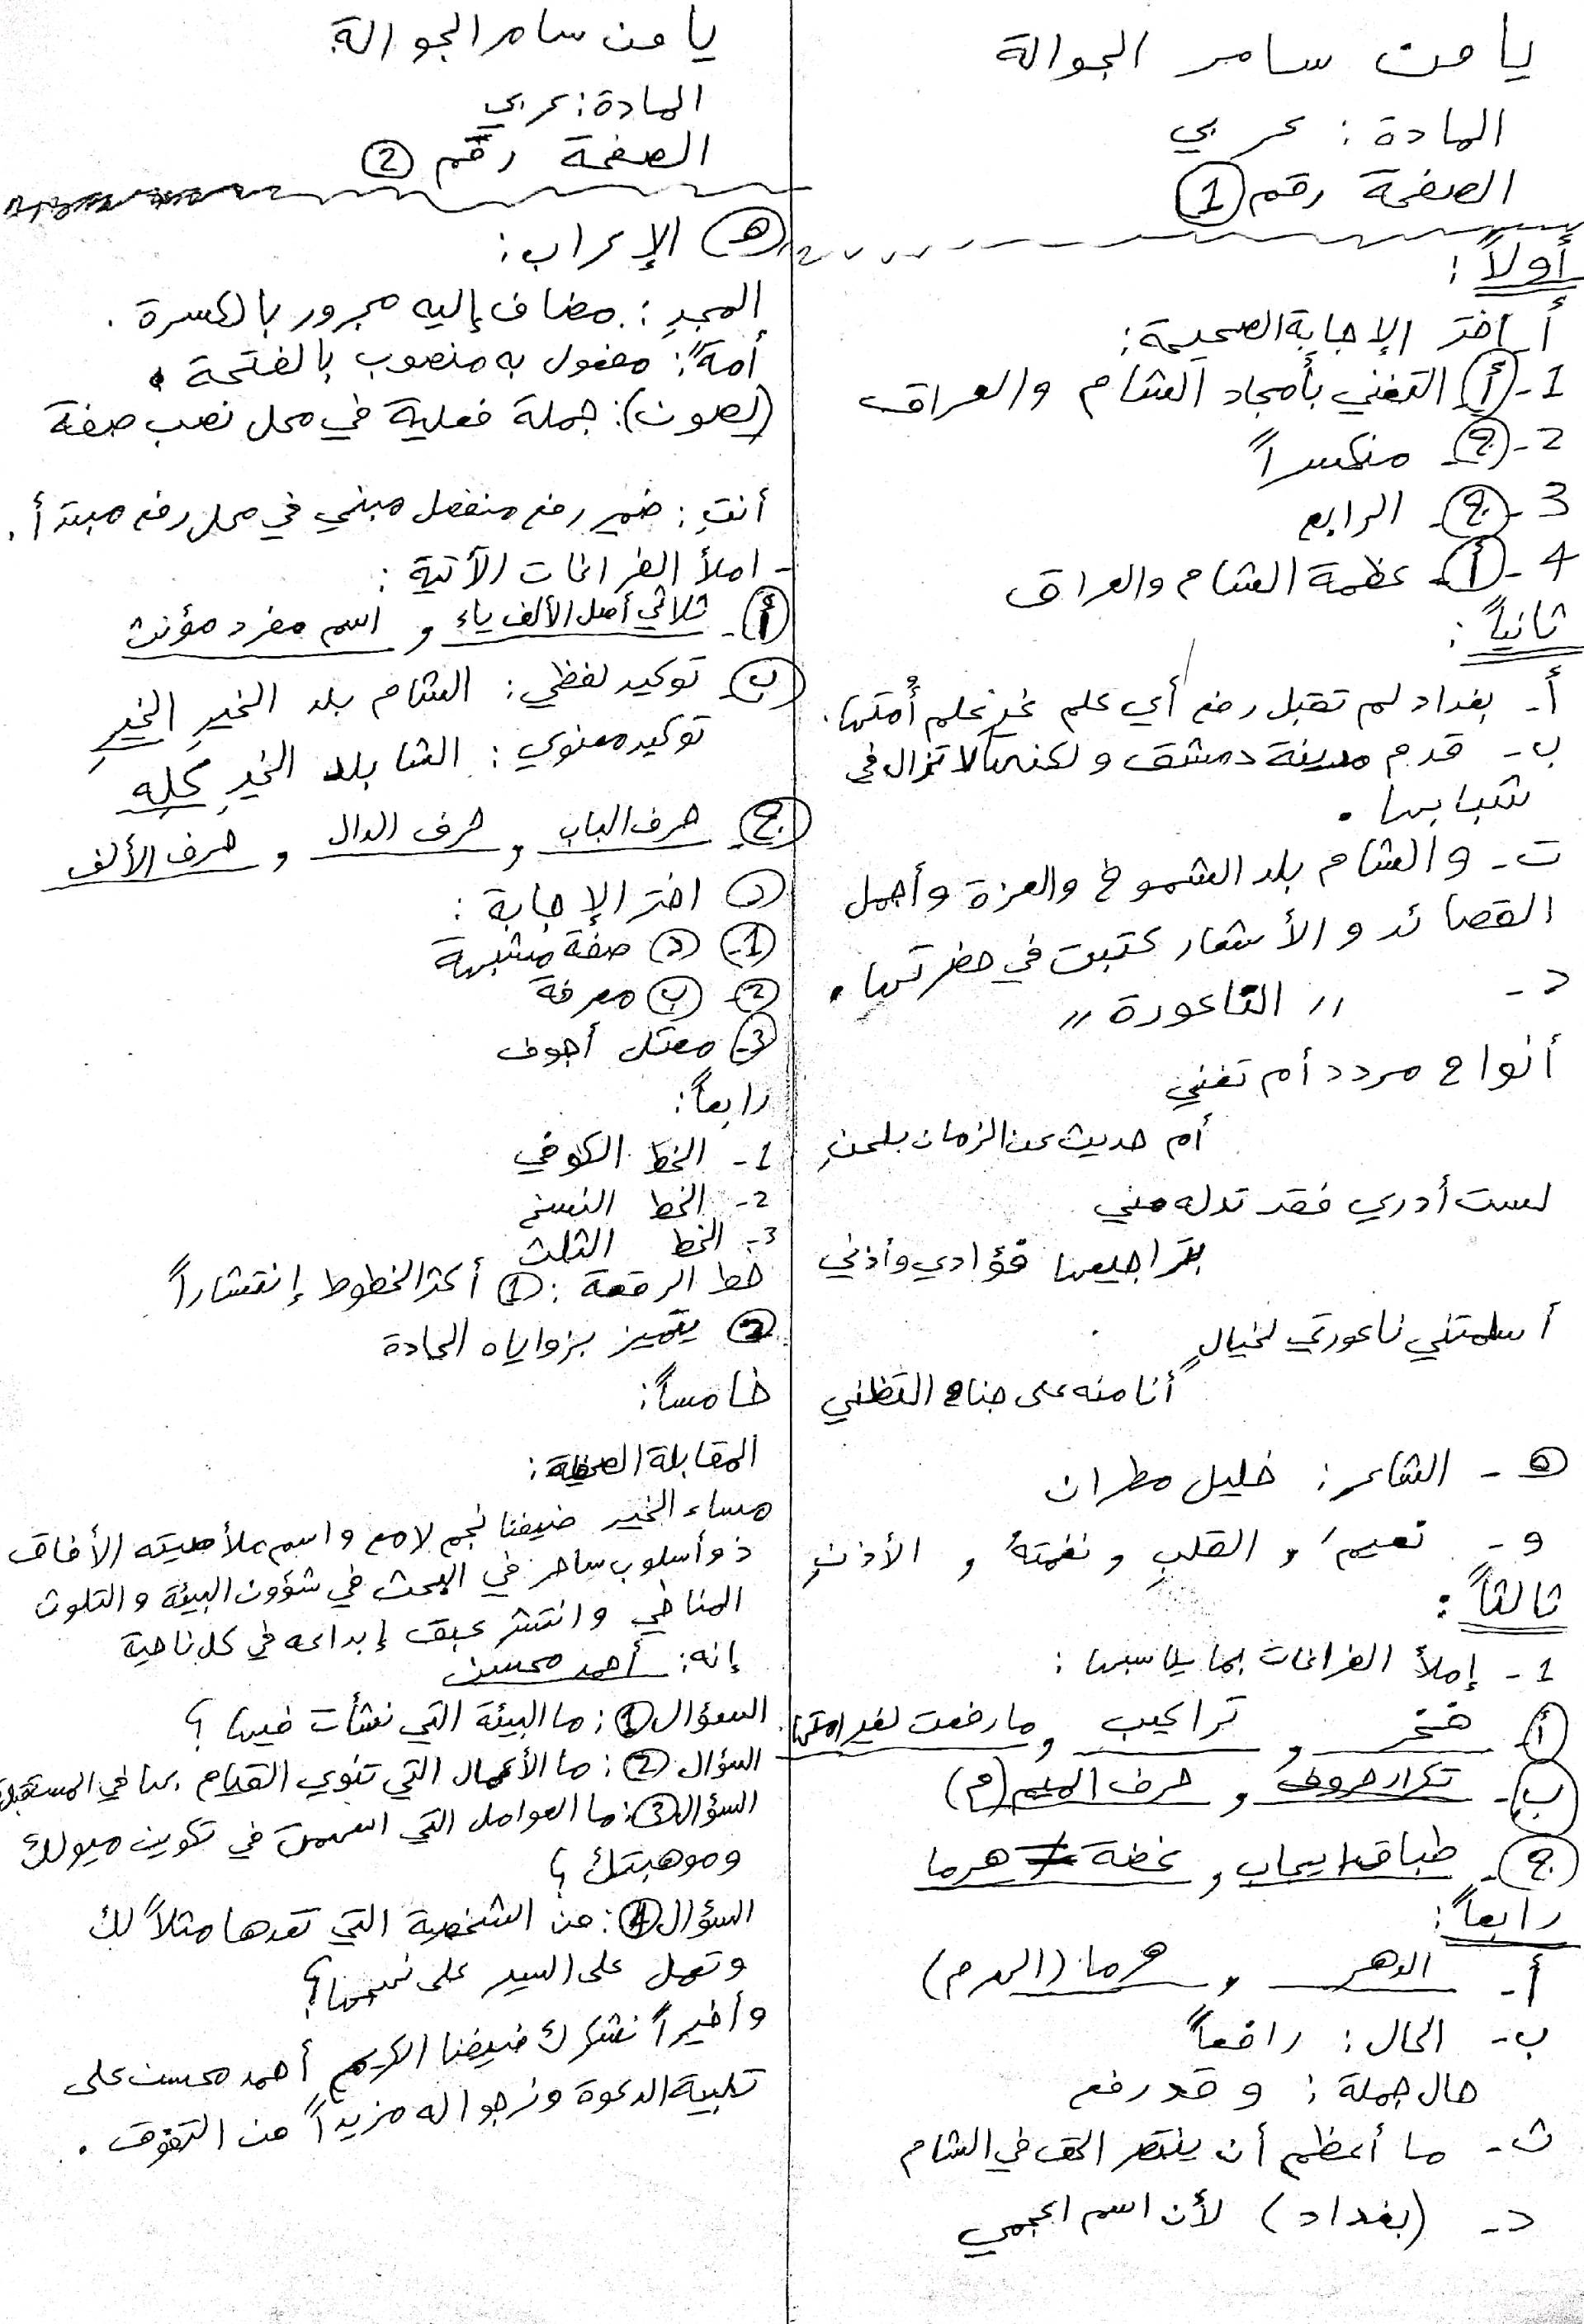 يامن سامر الجوالة
المادة : عربي
الصفحة رقم (1)
أولاً :
أ_ اختر الإجابة الصحيحة :
1- (أ) التغني بأمجاد الشام والعراق
2- (ج) منكسراً
3- (ج)_ الرابع
4- (أ)_ عظمة الشام والعراق
ثانياً :
أ- بغداد لم تقبل رفع أي علم غير علم أُمتها.
ب- قدم مدينة دمشق ولكنها لا تزال في
شبابها .
ت- والشام بلد الشموخ والعزة وأجمل
القصائد والأشعار كتبت في حضرتها .
د- " الناعورة "
أنواح مردد أم تغني
أم حديث عن الزمان بلحنِ
لست أدري فقد تدله مني
بتراجيعها فؤادي وأذني
أسلمتني ناعورتي لخيالٍ
أنا منه على جناح التظني
ه - الشاعر : خليل مطران
و- نعيمُ و القلبِ و نغمتهُ و الأذنِ
ثالثاً :
1 - إملأ الفراغات بما يناسبها :
(أ) فخر و تراكيب و ما رفعت لغير امتها
(ب)- تكرار حروف و حرف الميم (م)
(ج)- طباق ايجاب و غضة ≠ هرما
رابعاً :
أ- الدهر و هرما (الهرم)
ب- الحال : رافعاً
حال جملة : وقد رفع
ث- ما أعظم أن ينتصر الحق في الشام
د- (بغداد) لأن اسم اعجمي
يامن سامر الجوالة
المادة : عربي
الصفحة رقم (2)
(هـ) الإعراب :
المجدِ : مضاف إليه مجرور بالكسرة .
أمةً : مفعول به منصوب بالفتحة .
(لصون) : جملة فعلية في محل نصب صفة
أنتِ : ضمير رفع منفصل مبني في محل رفع مبتدأ .
- املأ الفراغات الآتية :
(أ)- ثلاثي أصل الألف ياء و اسم مفرد مؤنث
(ب) توكيد لفظي : الشام بلد الخيرِ الخيرِ
توكيد معنوي : الشا بلد الخيرِ كلهِ
(ج)- حرف الباب و حرف الدال و حرف الألف
(د) اختر الإجابة :
(1)- (د) صفة مشبهة
(2)- (ب) معرفة
(3)- معتل أجوف
رابعاً :
1- الخط الكوفي
2- الخط النسخ
3- الخط الثلث
خط الرقعة : (1) أكثر الخطوط إنتشاراً
(2) يتميز بزواياه الحادة
خامساً :
المقابلة الصحفية :
مساء الخير ضيفنا نجم لامع واسم ملأ صيته الأفاق
ذو أسلوب ساحر في البحث في شؤون البيئة والتلوث
المناخي وانتشر عبق إبداعه في كل ناحية
إنه : أحمد محسن
السؤال (1) : ما البيئة التي نشأت فيها ؟
السؤال (2) : ما الأعمال التي تنوي القيام بها في المستقبل
السؤال (3) : ما العوامل التي اسهمت في تكوين ميولك
وموهبتك ؟
السؤال (4) : من الشخصية التي تعدها مثلاً لك
وتعمل على السير على نهجها ؟
وأخيراً نشكرك ضيفنا الكريم أحمد محسن على
تلبية الدعوة ونرجوا له مزيداً من التفوق .